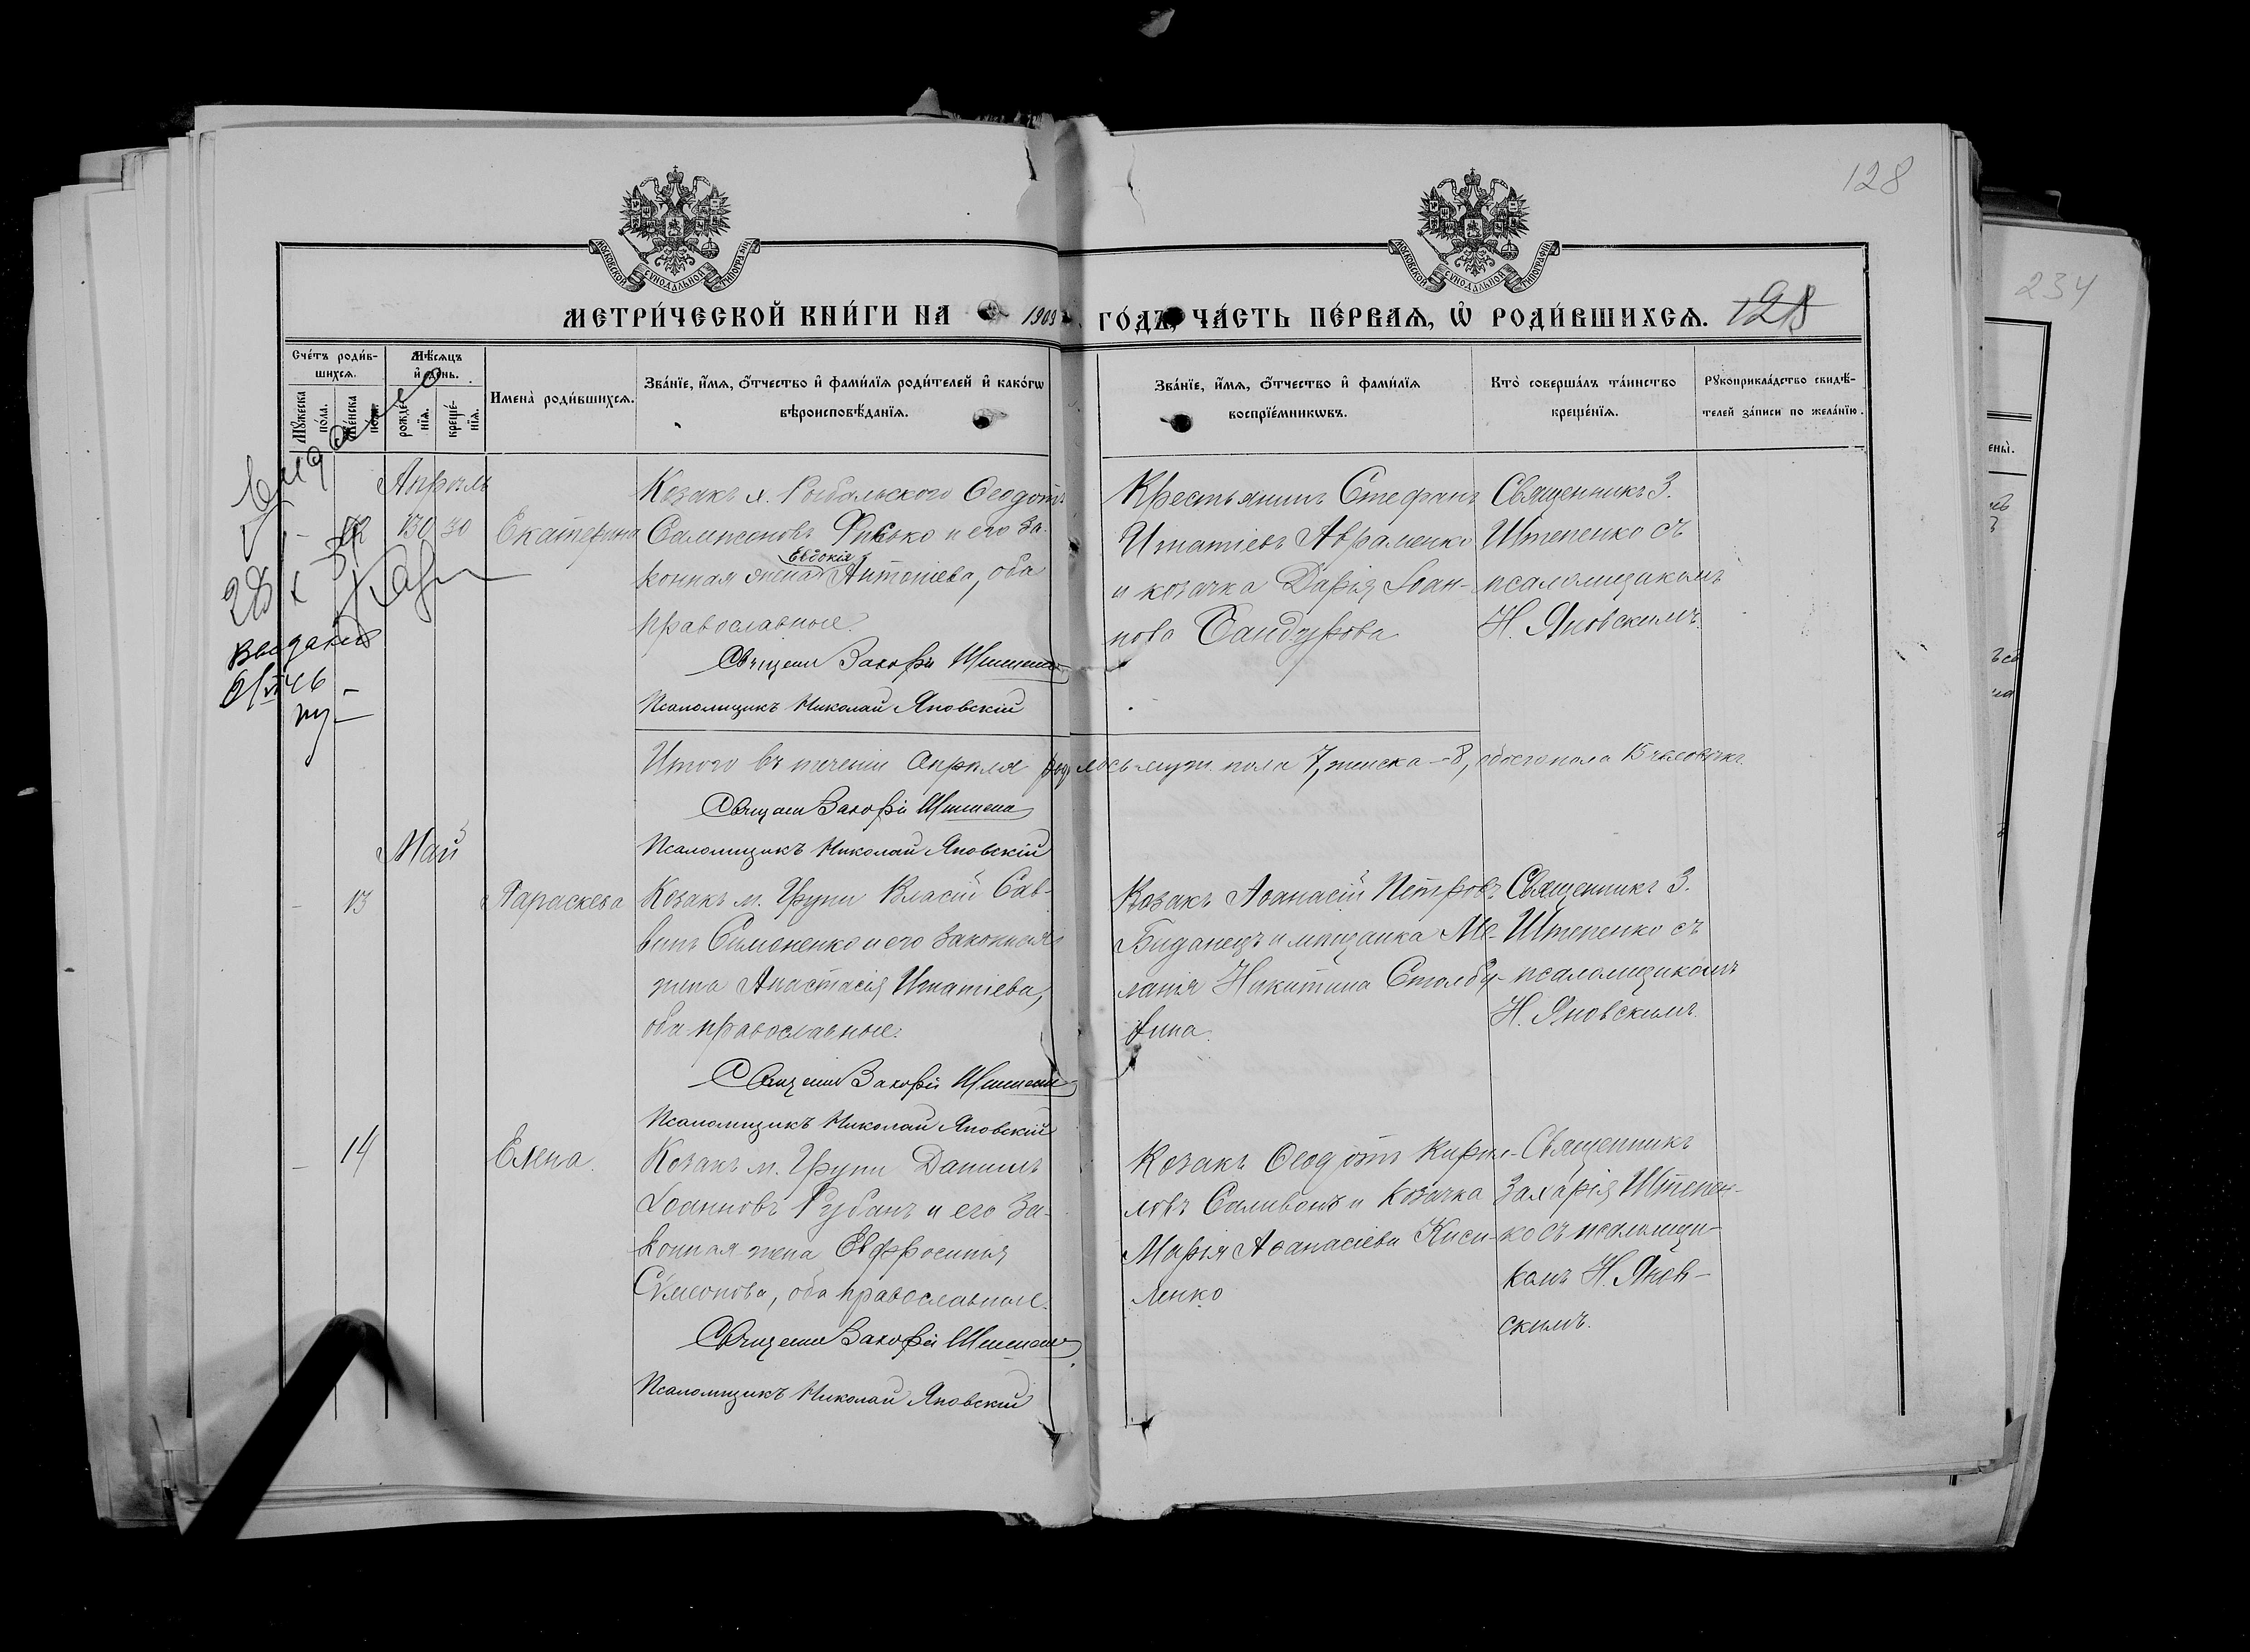 128
МОСКОВСКОЙ СѴНОДАЛЬНОЙ ТИПОГРАФІИ
МОСКОВСКОЙ СѴНОДАЛЬНОЙ ТИПОГРАФІИ
МЕТРИ́ЧЕСКОЙ КНИ́ГИ НА 1903 ГО́ДЪ, ЧА́СТЬ ПЕ́РВАѦ, Ѡ҆ РОДИ́ВШИХСѦ.
128
Сче́тъ роди́в-
шихсѧ.
Мꙋ́жеска по́ла.
Же́нска по́ла.
Мѣ́сѧцъ
и҆ де́нь.
рожде́-
нїѧ.
креще́-
нїѧ.
И҆мена̀ роди́вшихсѧ.
Зва́нїе, и҆́мѧ, ѻ҆́тчество и҆ фами́лїѧ роди́телей и҆ како́гѡ
вѣроисповѣ́данїѧ.
Зва́нїе, и҆́мѧ, ѻ҆́тчество и҆ фами́лїѧ
воспрїе́мникѡвъ.
Кто̀ соверша́лъ та́инство
креще́нїѧ.
Рꙋкоприкла́дство свидѣ́-
телей за́писи по жела́нїю.
Апрѣль
- 30 30
Екатерина
Козакъ х. Рыбальского Ѳеодотъ
Сампсоновъ Фисько и его за-
конная жена Евдокія Антоніева, оба
православные.
Священ Захарій Штепенко
Псаломщикъ Николай Яновскій
Крестьянинъ Стефанъ
Игнатіевъ Авраменко
и козачка Дарія Іоан-
нова Бандурова
Священникъ З.
Штепенко съ
псаломщикомъ
Н. Яновскимъ.
28
выдано
Итого въ теченіи Апрѣля родилось муж. пола 7, женска – 8, обоего пола 15 человѣкъ.
Священ Захарій Штепенко
Псаломщикъ Николай Яновскій
Май
- 13
Параскева
Козакъ м. Груни Власій Сав-
винъ Симоненко и его законная
жена Анастасія Игнатіева,
оба православные.
Священ Захарій Штепенко
Псаломщикъ Николай Яновскій
Козакъ Аѳанасій Петровъ
Биданецъ и мѣщанка Ме-
ланія Никитина Столбу-
нина.
Священникъ З.
Штепенко съ
псаломщикомъ
Н. Яновскимъ.
- 14
Елена.
Козакъ м. Груни Даніилъ
Іоанновъ Рубанъ и его за-
конная жена Евфросинія
Симеонова, оба православные.
Священ Захарій Штепенко
Псаломщикъ Николай Яновскій
Козакъ Ѳеодотъ Кирил-
ловъ Саливонъ и козачка
Марія Аѳанасіева Киси-
ленко
Священникъ
Захарія Штепен-
ко съ псаломщи-
комъ Н. Янов-
скимъ.
234